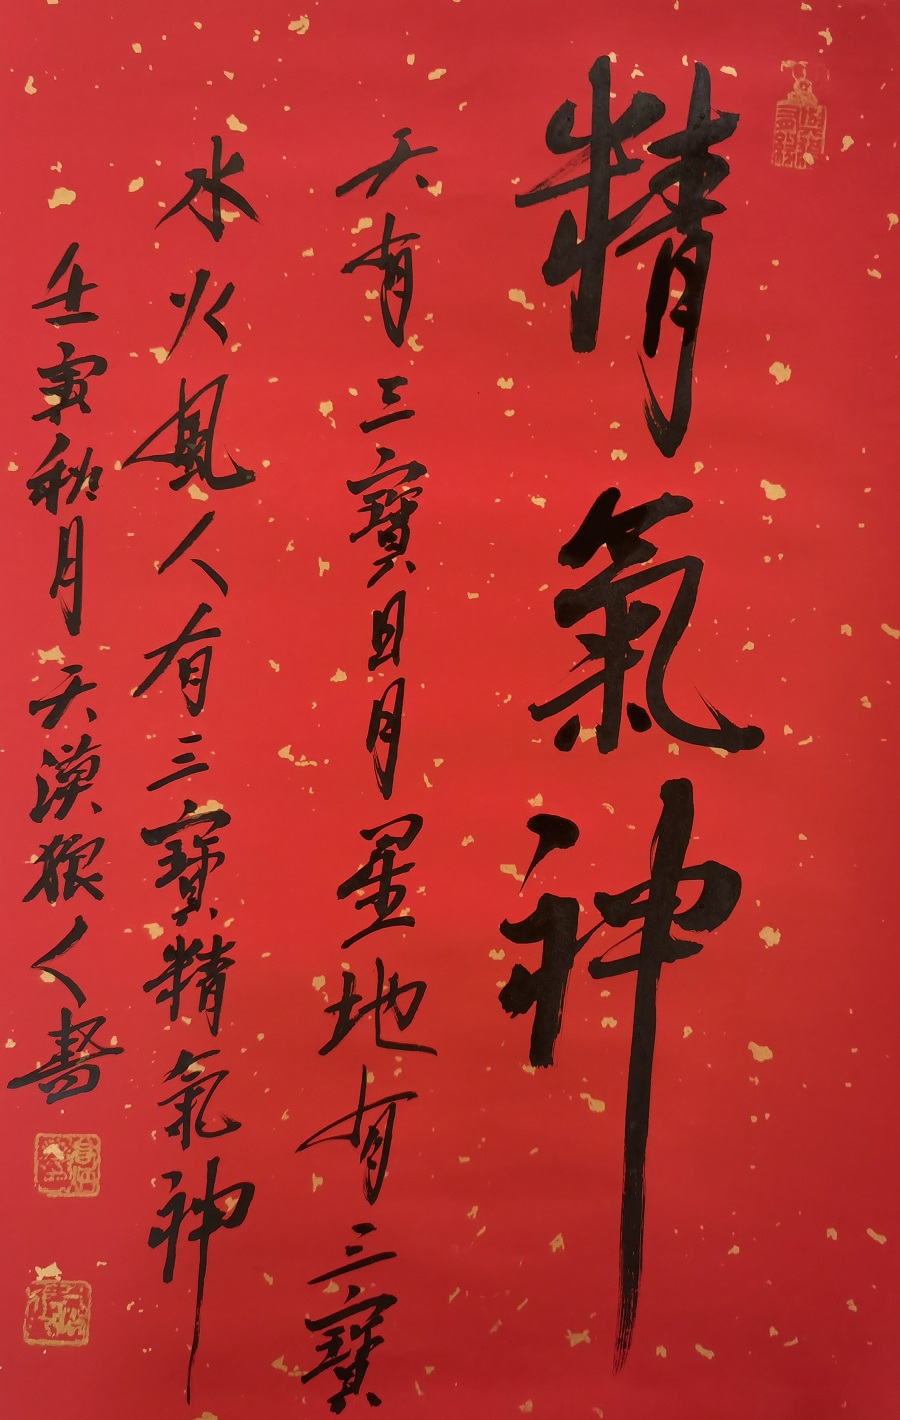 精氣神
天有三寶日月星地有三寶
水火風人有三寶精氣神
壬寅秋月天漠狼人書